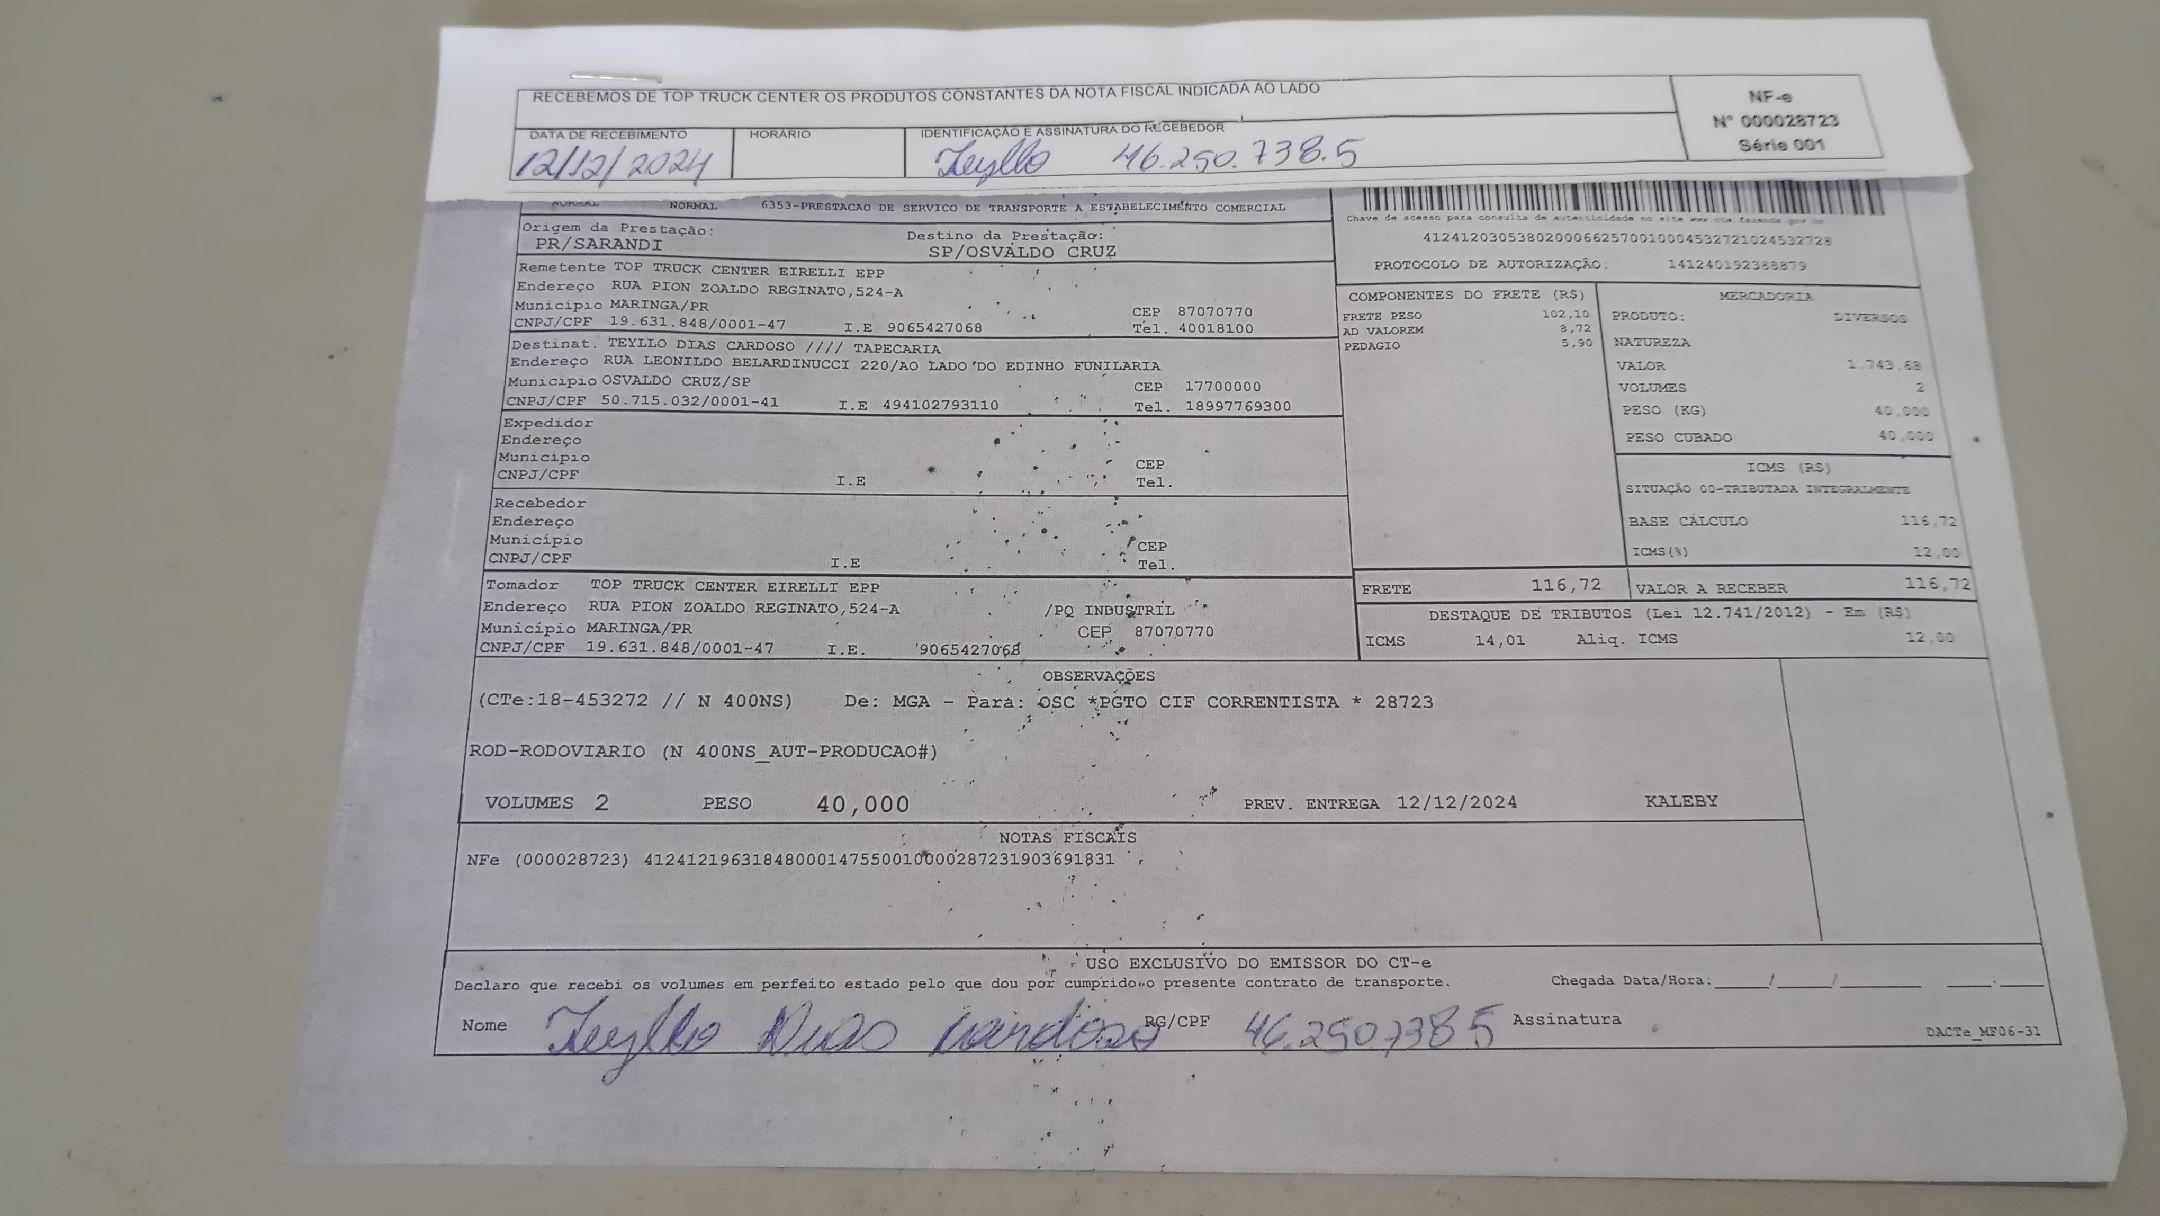 RECEBEMOS DE TOP TRUCK CENTER OS PRODUTOS CONSTANTES DA NOTA FISCAL INDICADA AO LADO
NF-e
Nº 000028723
Série 001
DATA DE RECEBIMENTO
12/12/2024
HORÁRIO
IDENTIFICAÇÃO E ASSINATURA DO RECEBEDOR
Teyllo 46.250.738.5
NORMAL NORMAL 6353-PRESTACAO DE SERVICO DE TRANSPORTE A ESTABELECIMENTO COMERCIAL
Origem da Prestação:
PR/SARANDI
Destino da Prestação:
SP/OSVALDO CRUZ
Chave de acesso para consulta de autenticidade no site www.cte.fazenda.gov.br
41241203053802000662570010004532721024532728
PROTOCOLO DE AUTORIZAÇÃO: 141240192388879
Remetente TOP TRUCK CENTER EIRELLI EPP
Endereço RUA PION ZOALDO REGINATO,524-A
Município MARINGA/PR CEP 87070770
CNPJ/CPF 19.631.848/0001-47 I.E 9065427068 Tel. 40018100
Destinat. TEYLLO DIAS CARDOSO //// TAPECARIA
Endereço RUA LEONILDO BELARDINUCCI 220/AO LADO DO EDINHO FUNILARIA
Município OSVALDO CRUZ/SP CEP 17700000
CNPJ/CPF 50.715.032/0001-41 I.E 494102793110 Tel. 18997769300
Expedidor
Endereço
Município CEP
CNPJ/CPF I.E Tel.
Recebedor
Endereço
Município CEP
CNPJ/CPF I.E Tel.
Tomador TOP TRUCK CENTER EIRELLI EPP
Endereço RUA PION ZOALDO REGINATO,524-A /PQ INDUSTRIL
Município MARINGA/PR CEP 87070770
CNPJ/CPF 19.631.848/0001-47 I.E. 9065427068
COMPONENTES DO FRETE (R$)
FRETE PESO 102,10
AD VALOREM 8,72
PEDAGIO 5,90
MERCADORIA
PRODUTO: DIVERSOS
NATUREZA
VALOR 1.743,68
VOLUMES 2
PESO (KG) 40,000
PESO CUBADO 40,000
ICMS (R$)
SITUAÇÃO 00-TRIBUTADA INTEGRALMENTE
BASE CÁLCULO 116,72
ICMS(%) 12,00
FRETE 116,72 VALOR A RECEBER 116,72
DESTAQUE DE TRIBUTOS (Lei 12.741/2012) - Em (R$)
ICMS 14,01 Aliq. ICMS 12,00
OBSERVAÇÕES
(CTe:18-453272 // N 400NS) De: MGA - Para: OSC *PGTO CIF CORRENTISTA * 28723
ROD-RODOVIARIO (N 400NS_AUT-PRODUCAO#)
VOLUMES 2 PESO 40,000 PREV. ENTREGA 12/12/2024 KALEBY
NOTAS FISCAIS
NFe (000028723) 41241219631848000147550010000287231903691831
USO EXCLUSIVO DO EMISSOR DO CT-e
Declaro que recebi os volumes em perfeito estado pelo que dou por cumprido o presente contrato de transporte. Chegada Data/Hora:____/____/______ ____:____
Nome Teyllo Dias Cardoso RG/CPF 46.250.738 5 Assinatura
DACTe_MF06-31